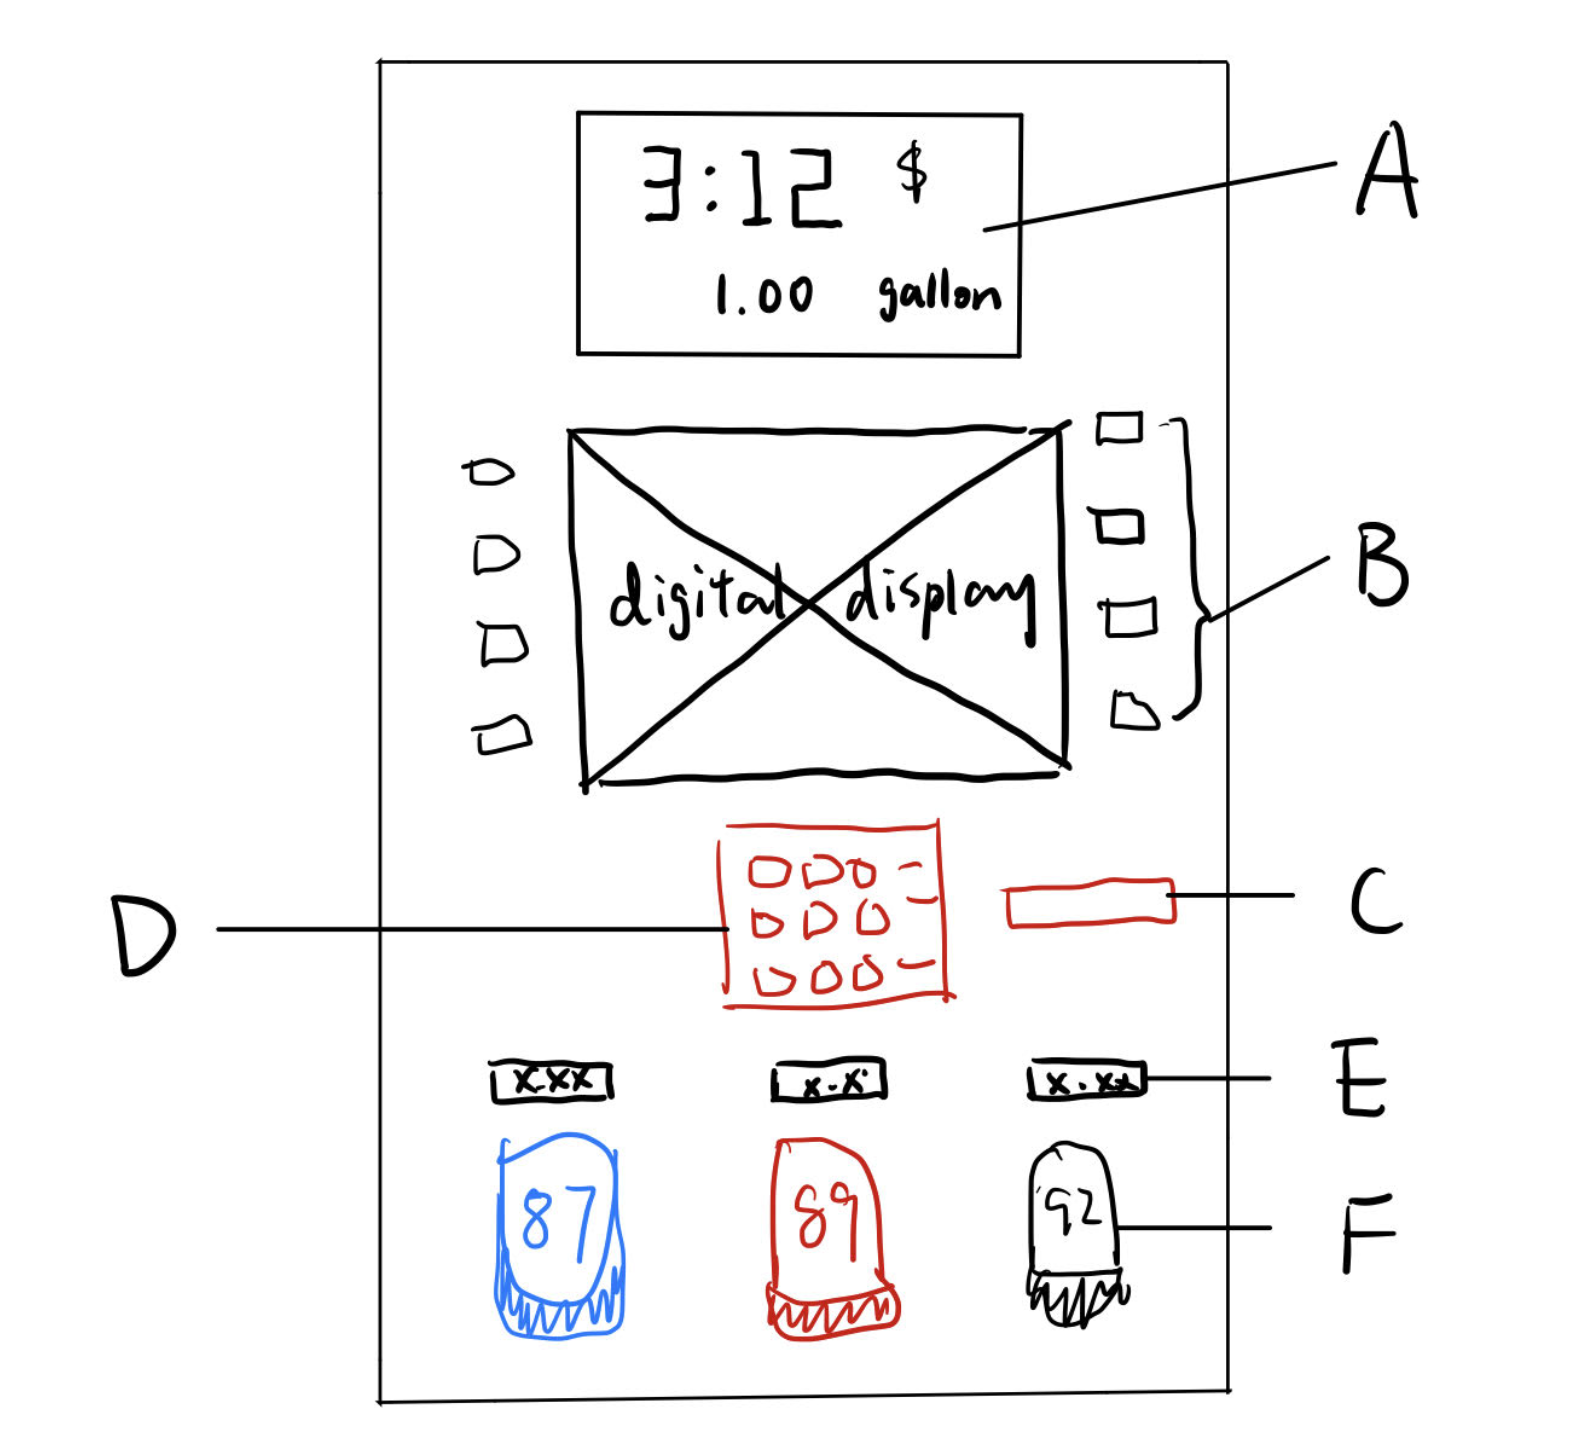 3:12 $
A
1.00 gallon
B
digital display
C
D
E
x.xx
x.x
x.xx
F
87
89
92